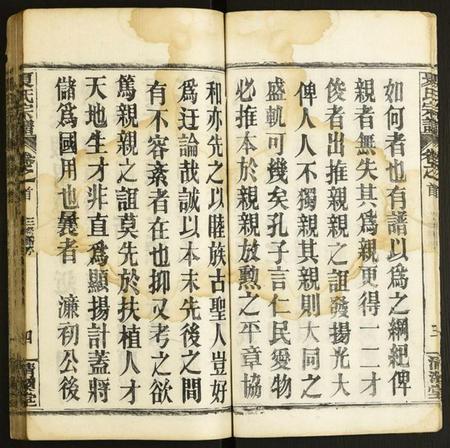 如何者也有譜以爲之綱紀俾
親者無失其爲親更得一二才
俊者出推親親之誼發揚光大
俾人人不獨親其親則大同之
盛軌可幾矣孔子言仁民愛物
必推本於親親放勲之平章協
和亦先之以睦族古聖人豈好
爲迂論哉誠以本末先後之間
有不容紊者在也抑又考之欲
篤親親之誼莫先於扶植人才
天地生才非直爲顯揚計蓋將
儲爲國用也曩者 濂初公後
夏氏宗譜 卷之首
四 清溪堂